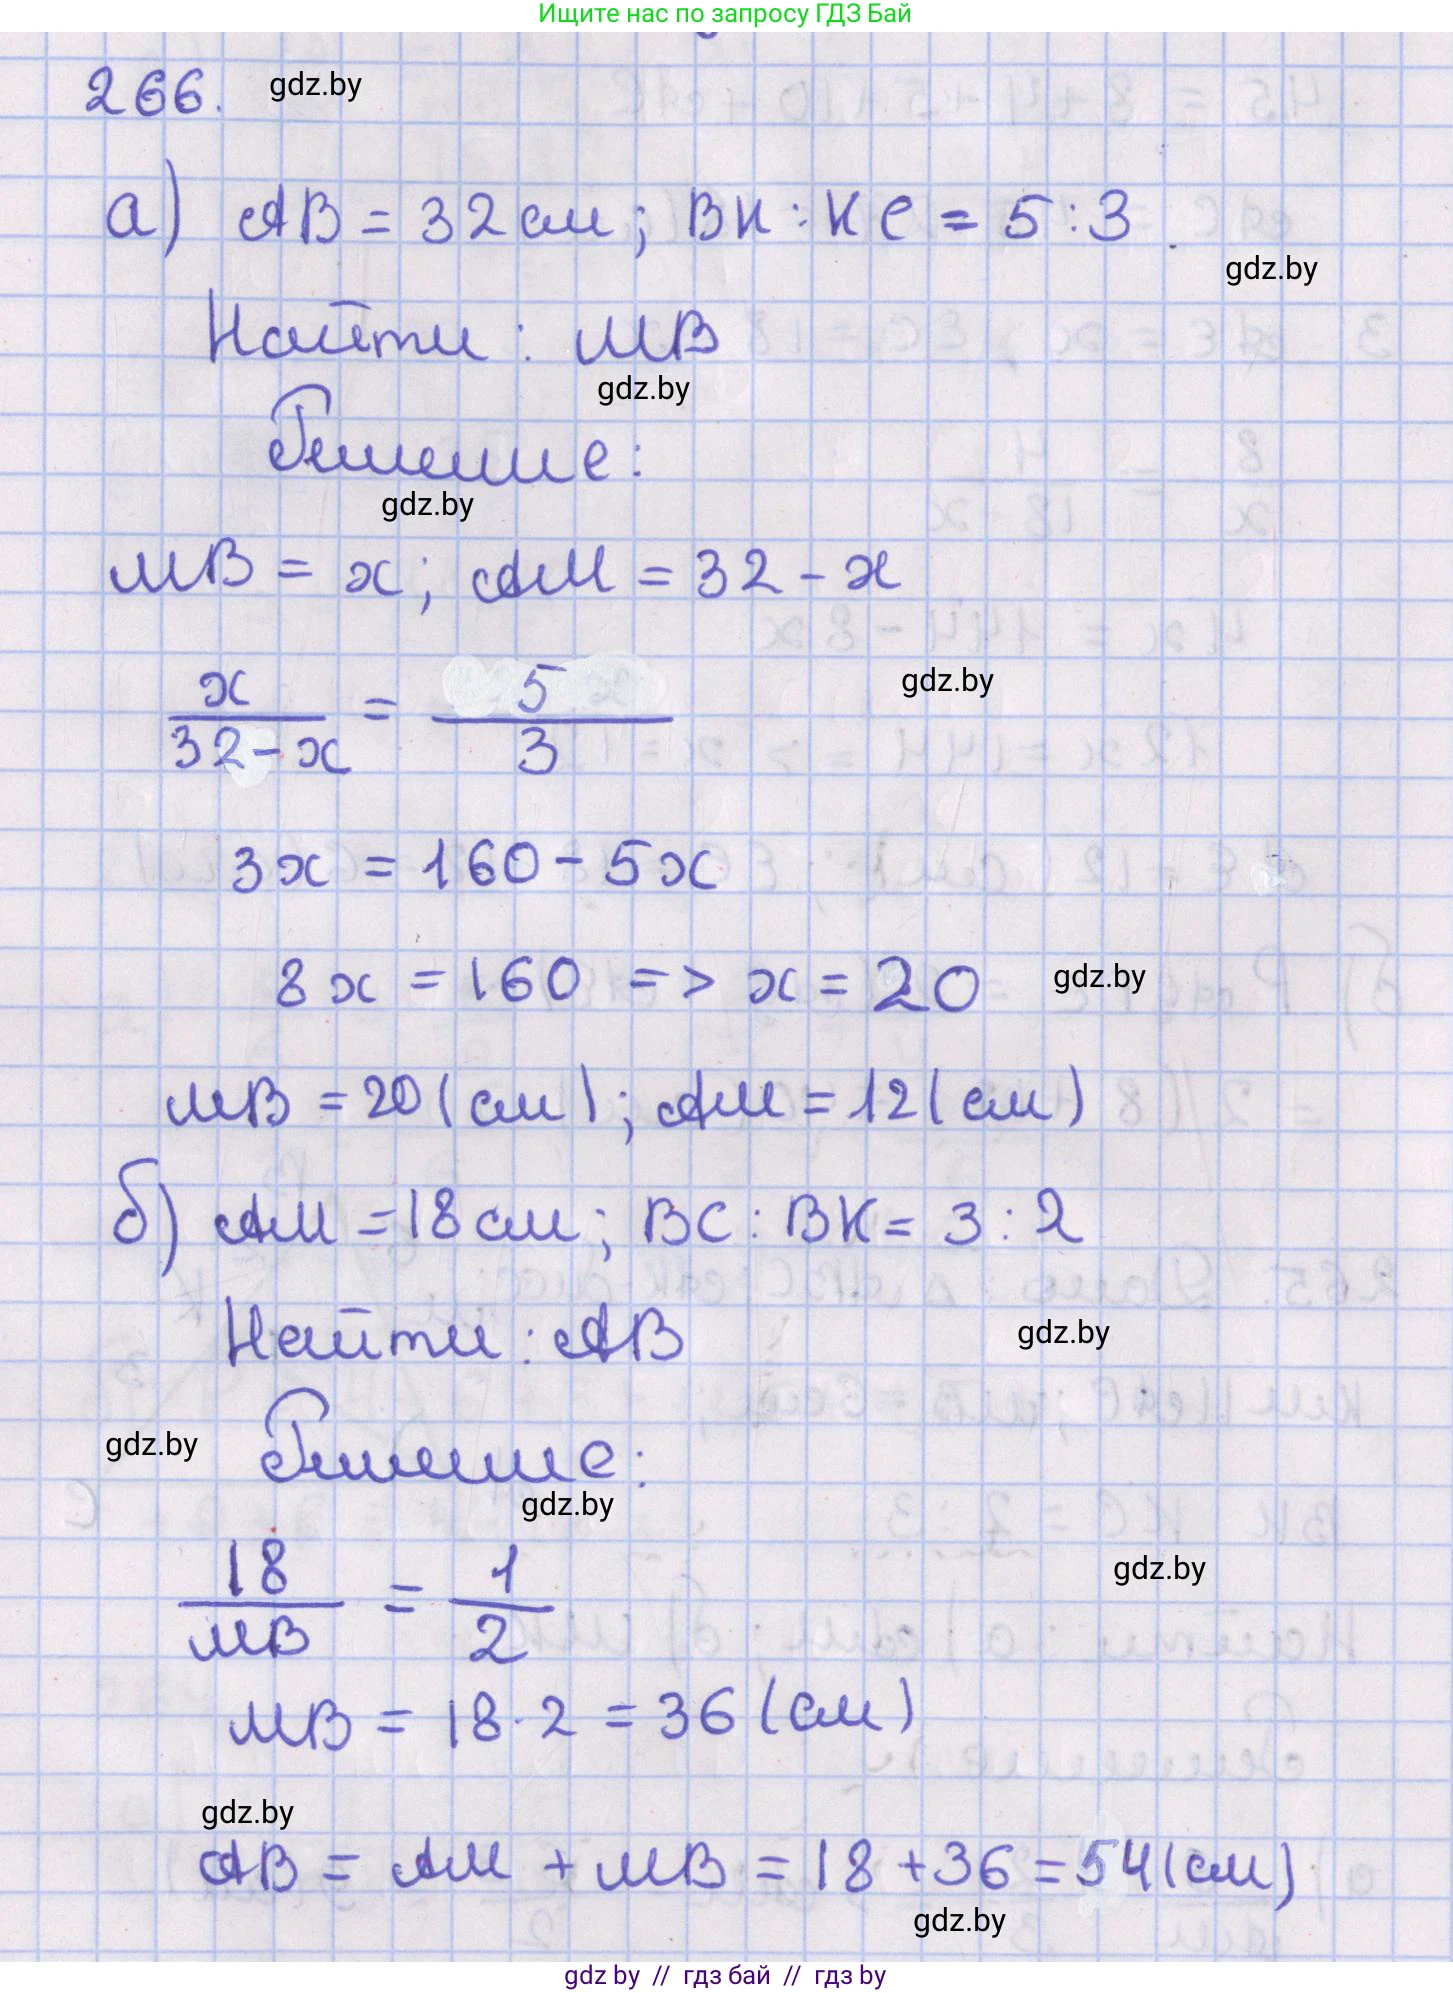 Ищите нас по запросу ГДЗ Бай
266. gdz.by
а) АВ = 32 см; ВК : КС = 5 : 3.
gdz.by
Найти : МВ
gdz.by
Решение:
gdz.by
МВ = x; АМ = 32 - x
x/(32 - x) = 5/3
gdz.by
3x = 160 - 5x
8x = 160 => x = 20 gdz.by
МВ = 20 (см); АМ = 12 (см)
б) АМ = 18 см; ВС : ВК = 3 : 2
Найти : АВ
gdz.by
gdz.by Решение:
gdz.by
18/МВ = 1/2
gdz.by
МВ = 18 · 2 = 36 (см)
gdz.by
АВ = АМ + МВ = 18 + 36 = 54 (см)
gdz.by
gdz by // гдз бай // гдз by